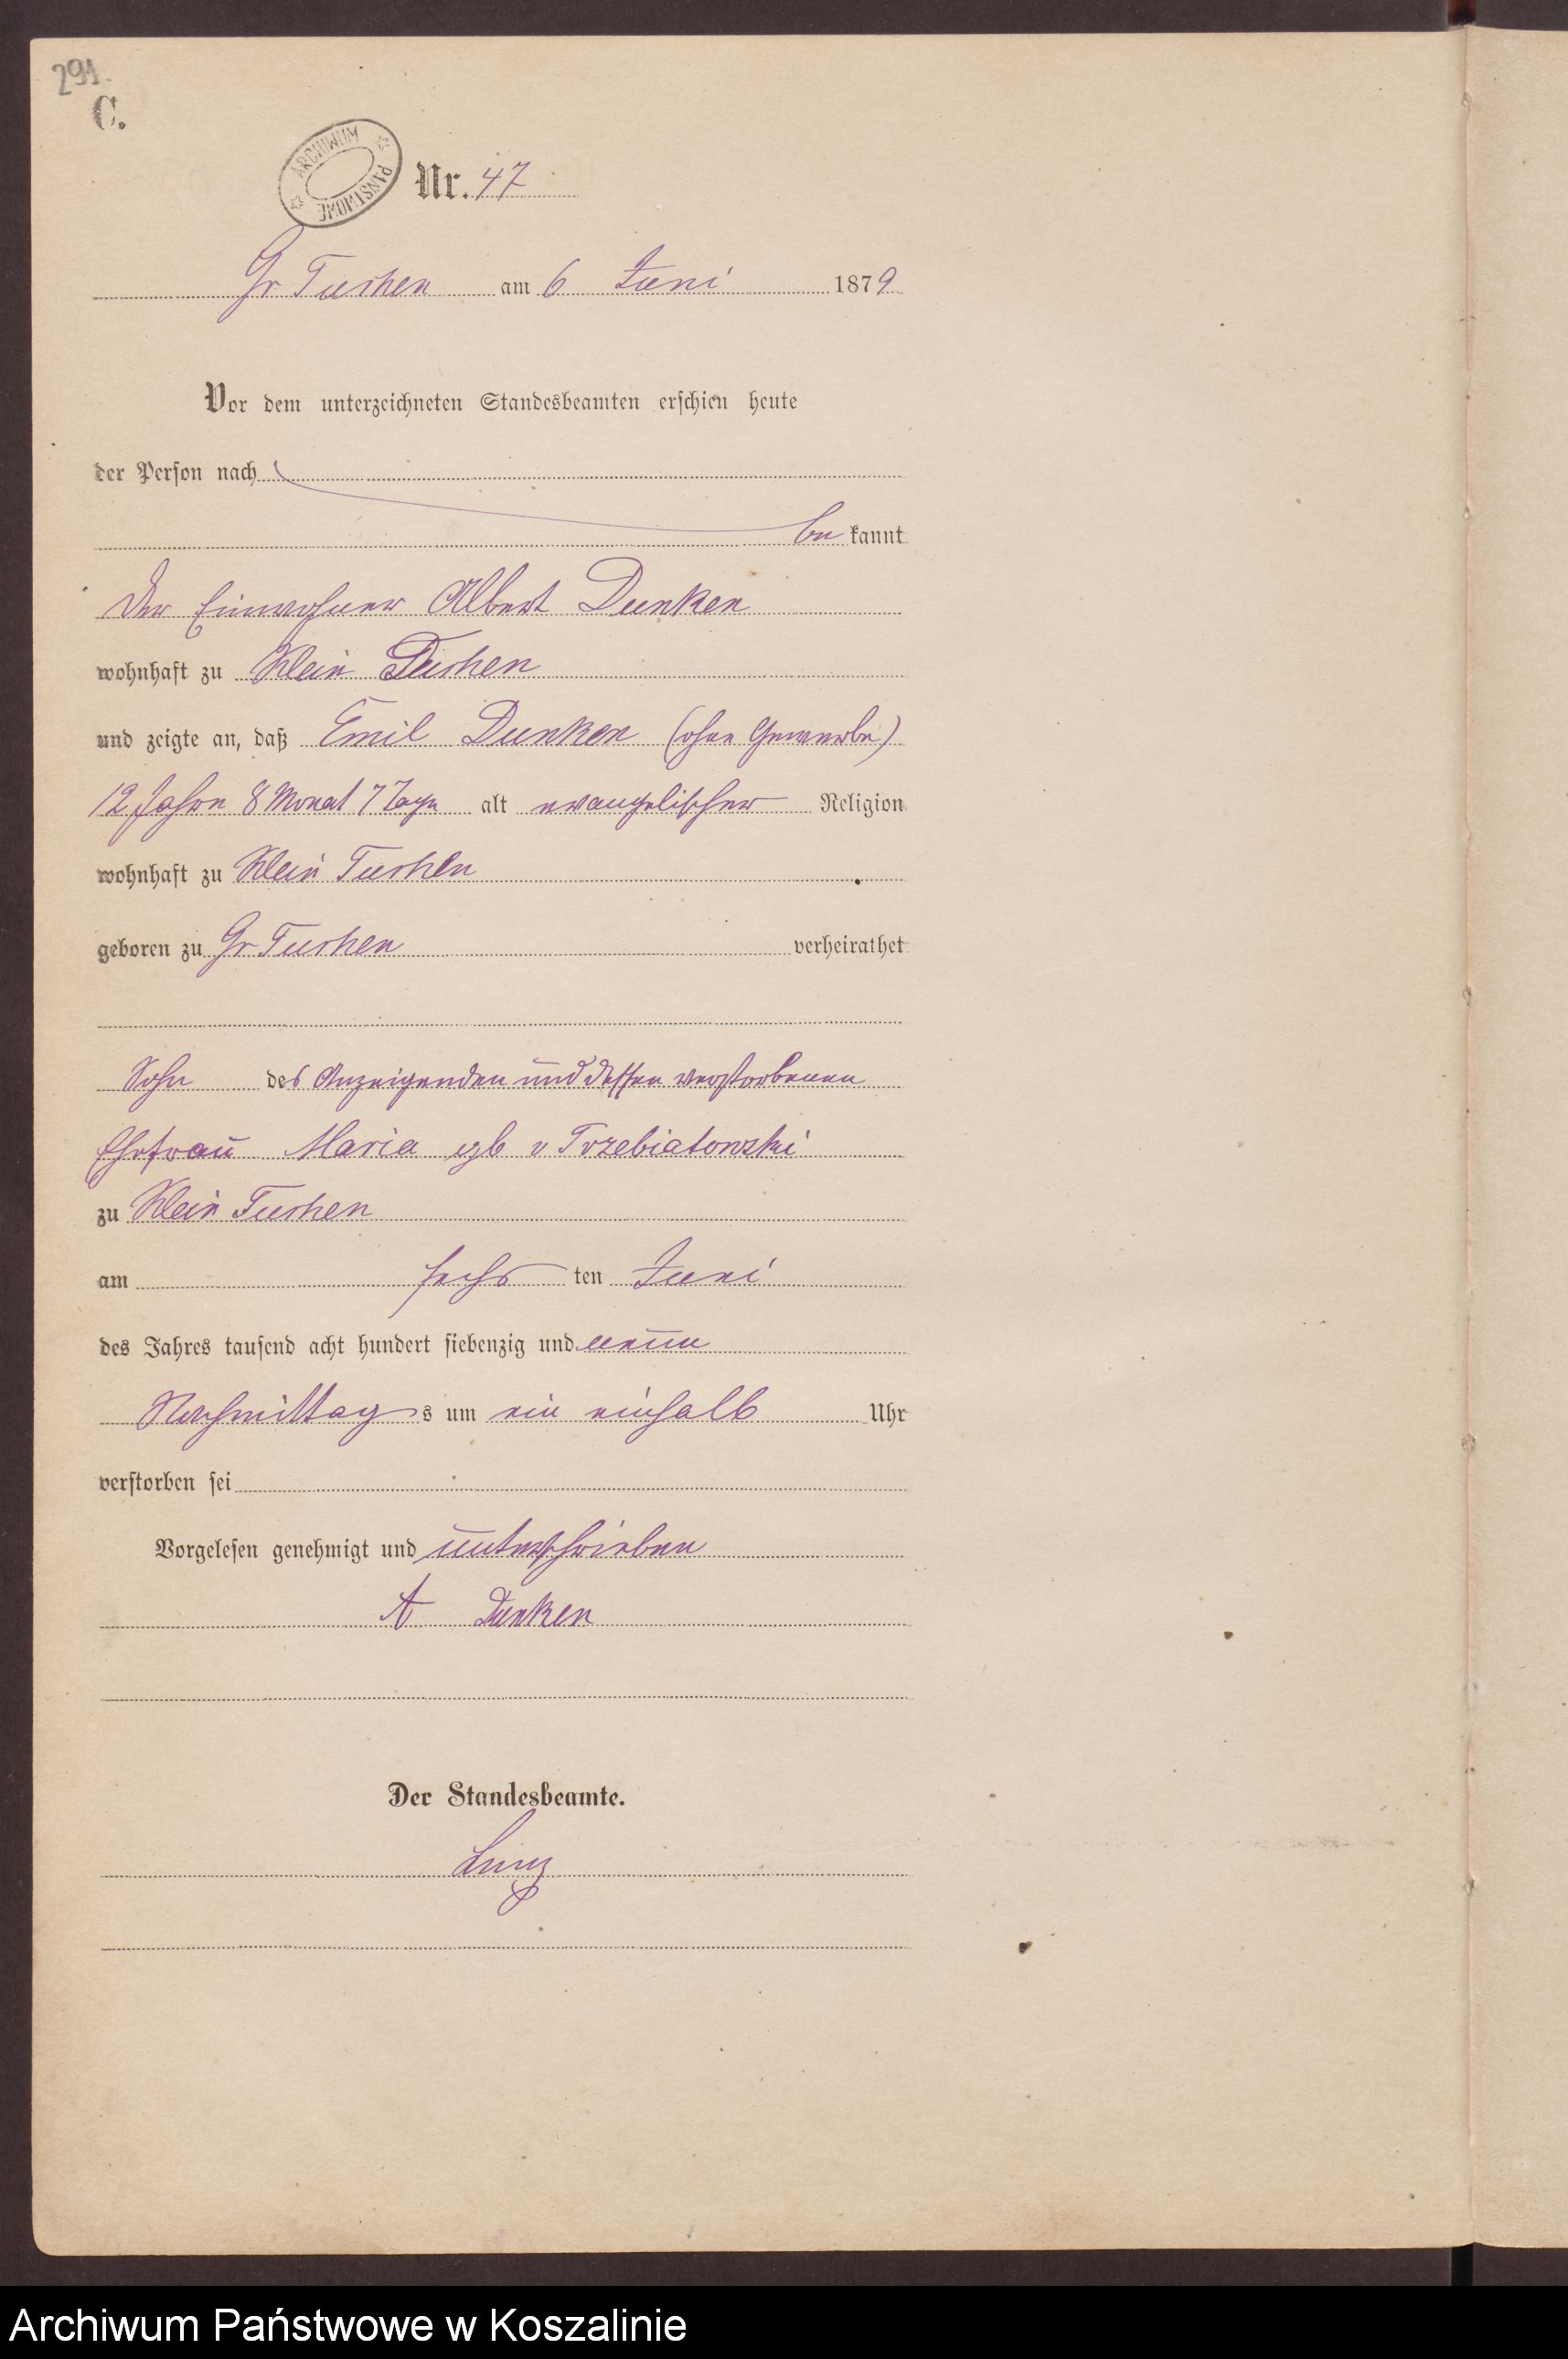 291.
C.
ARCHIWUM PAŃSTWOWE
Nr. 47
Gr Tuchen am 6 Juni 1879
Vor dem unterzeichneten Standesbeamten erschien heute
der Person nach
be kannt
Der Einwohner Albert Dunken
wohnhaft zu Klein Tuchen
und zeigte an, daß Emil Dunken (ohne Gewerbe)
12 Jahre 8 Monat 7 Tage alt evangelischer Religion
wohnhaft zu Klein Tuchen
geboren zu Gr Tuchen verheirathet
Sohn des Anzeigenden und dessen verstorbenen
Ehefrau Maria geb v Trzebiatowski
zu Klein Tuchen
am sechs ten Juni
des Jahres tausend acht hundert siebenzig und neun
Nachmittag s um ein einhalb Uhr
verstorben sei
Vorgelesen genehmigt und unterschrieben
A Dunken
Der Standesbeamte.
Archiwum Państwowe w Koszalinie